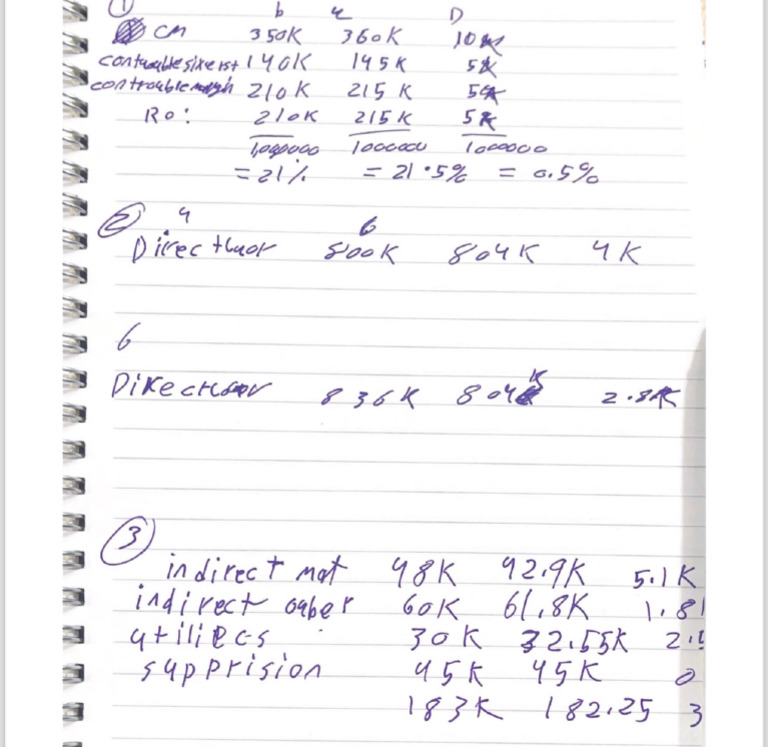 ① b a D
CM 350K 360K 10K
controuablesixerst 140K 145K 5K
controublemargh 210K 215K 5K
Ro: 210K 215K 5K
1000000 1000000 1000000
= 21% = 21.5% = 0.5%
② a b
Direct luor 800K 804K 4K
6
Direct luor 836K 804K 2.8K
③
indirect mat 48K 42.9K 5.1K
indirect oaber 60K 61.8K 1.8
utiliecs 30K 32.55K 2.5
supprision 45K 45K 0
183K 182.25 3